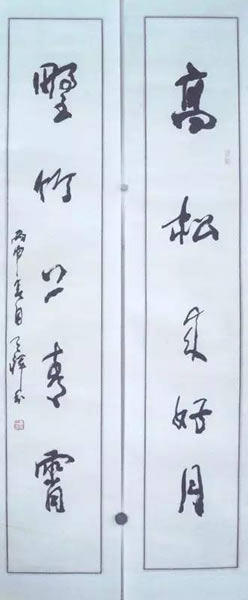 高松来好月
野竹上青霄
丙申春月